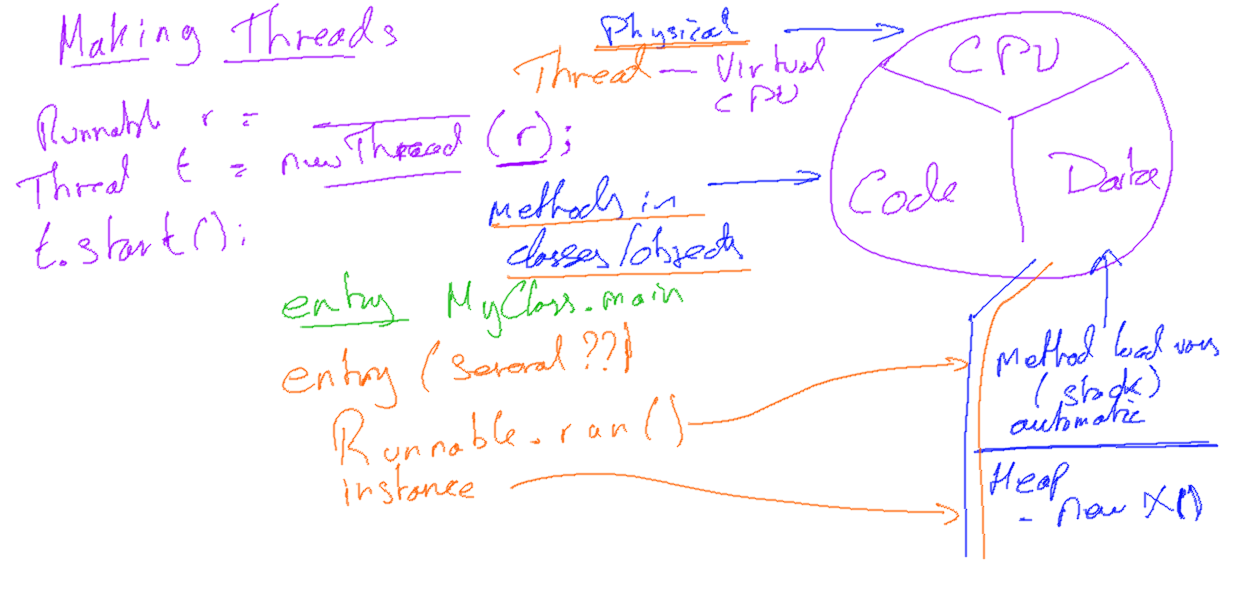 Making Threads
Runnable r =
Thread t = new Thread (r);
t.start();
Physical
Thread — Virtual
CPU
Methods in
classes/objects
entry MyClass.main
entry (several ??)
Runnable.run()
instance
CPU
Code
Data
Method local vars
(stack)
automatic
Heap
- new X()